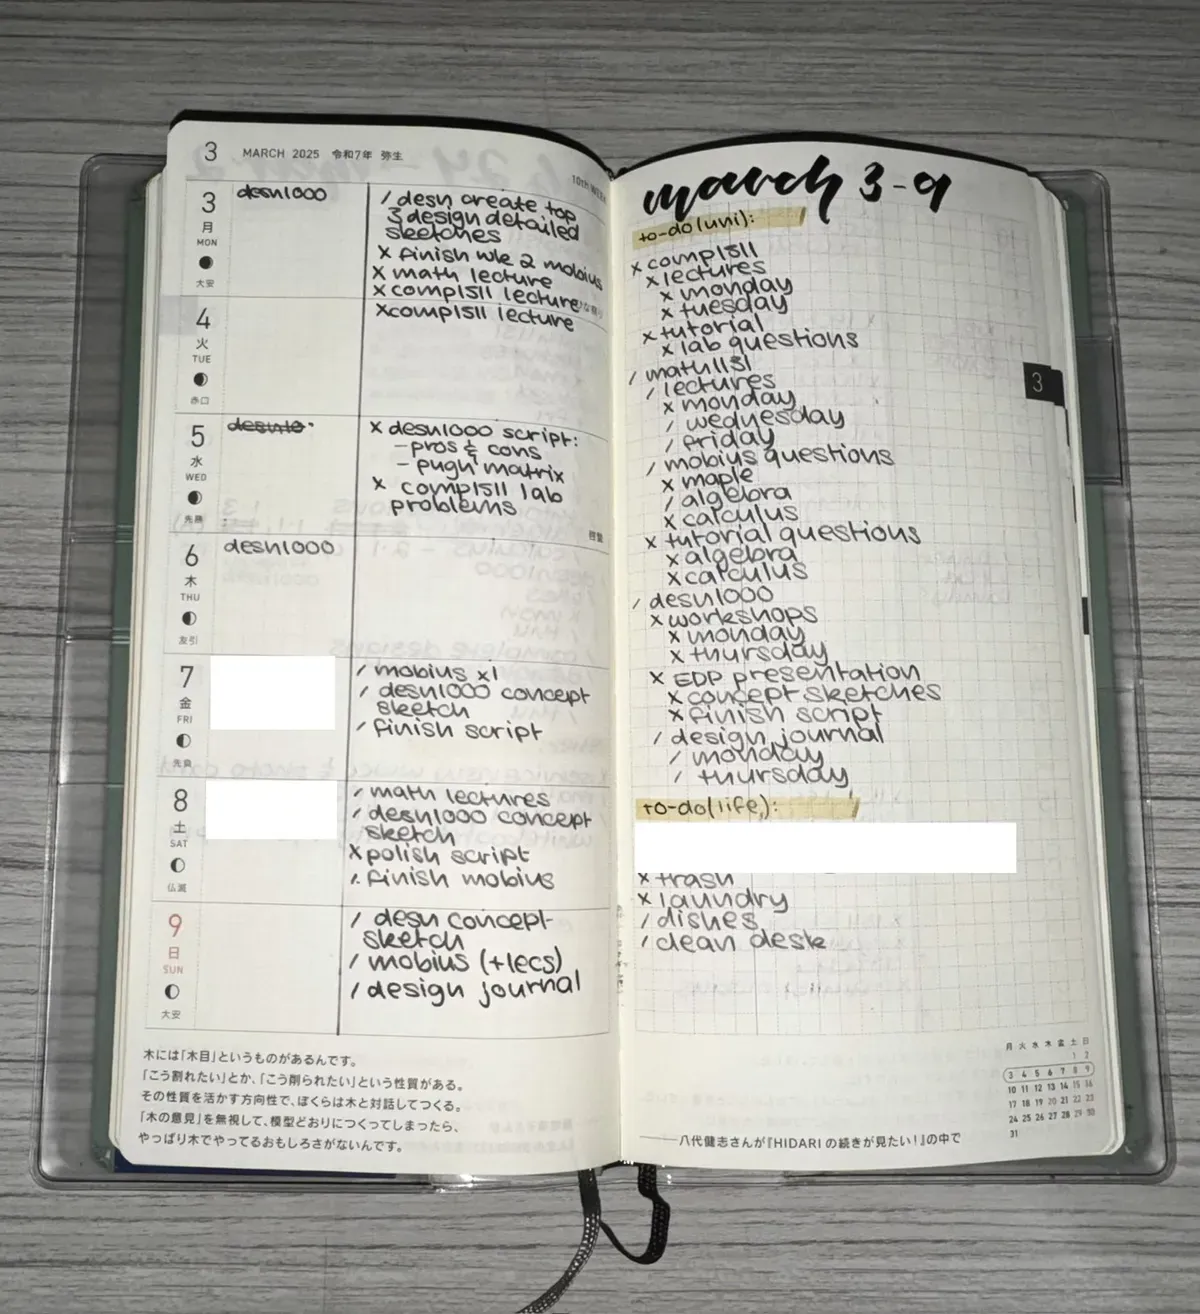 3 MARCH 2025 令和7年 弥生
10th WEEK
3
月
MON
大安
desn1000
/ desn create top
3 design detailed
sketches
x finish wk 2 mobius
x math lecture
x comp1511 lecture
4
火
TUE
赤口
xcomp1511 lecture
5
水
WED
先勝
x desn1000 script:
- pros & cons
- pugh matrix
x comp1511 lab
problems
啓蟄
6
木
THU
友引
desn1000
7
金
FRI
先負
/ mobius x1
/ desn1000 concept
sketch
/ finish script
8
土
SAT
仏滅
/ math lectures
/ desn1000 concept
sketch
x polish script
/. finish mobius
9
日
SUN
大安
/ desn concept
sketch
/ mobius (+lecs)
/ design journal
木には「木目」というものがあるんです。
「こう割れたい」とか、「こう削られたい」という性質がある。
その性質を活かす方向性で、ぼくらは木と対話してつくる。
「木の意見」を無視して、模型どおりにつくってしまったら、
やっぱり木でやってるおもしろさがないんです。
march 3-9
to-do(uni):
x comp1511
x lectures
x monday
x tuesday
x tutorial
x lab questions
/ math1131
/ lectures
x monday
/ wednesday
/ friday
/ mobius questions
x maple
/ algebra
x calculus
x tutorial questions
x algebra
x calculus
/ desn1000
x workshops
x monday
x thursday
x EDP presentation
x concept sketches
x finish script
/ design journal
/ monday
/ thursday
to-do(life):
x trash
x laundry
/ dishes
/ clean desk
3
月 火 水 木 金 土 日
1 2
3 4 5 6 7 8 9
10 11 12 13 14 15 16
17 18 19 20 21 22 23
24 25 26 27 28 29 30
31
——八代健志さんが『HIDARIの続きが見たい！』の中で